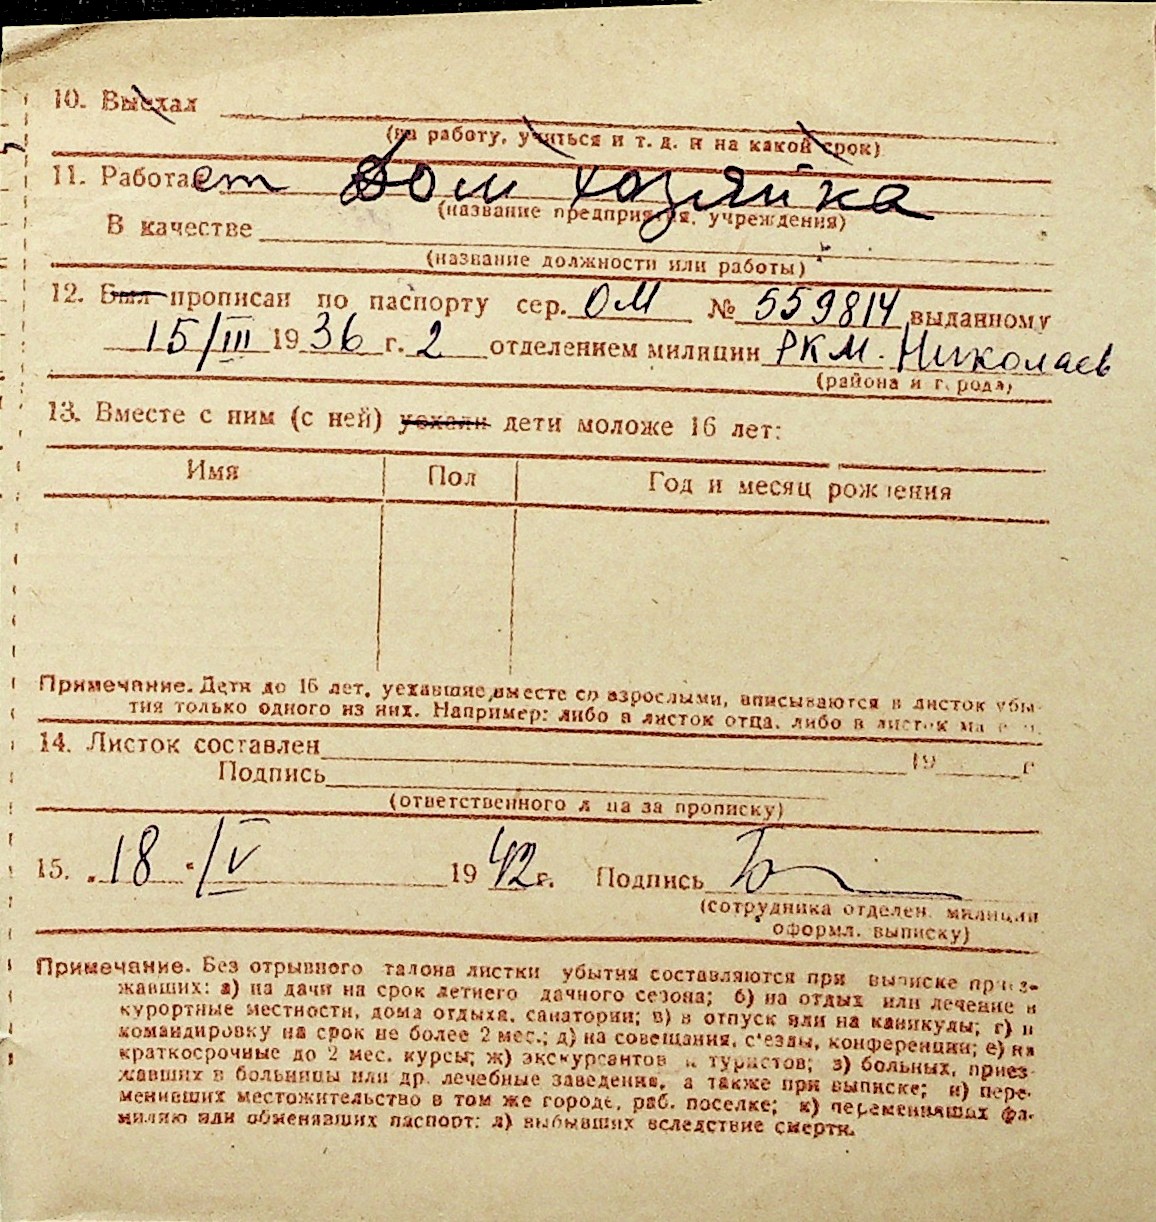 10. Выехал
(на работу, учиться и т. д. и на какой срок)
11. Работает Дом хозяйка
(название предприятия, учреждения)
В качестве
(название должности или работы)
12. Был прописан по паспорту сер. ОМ № 559814 выданному
15/III 1936 г. 2 отделением милиции РКМ. Николаев
(района и города)
13. Вместе с ним (с ней) уехали дети моложе 16 лет:
Имя Пол Год и месяц рождения
Примечание. Дети до 16 лет, уехавшие вместе со взрослыми, вписываются в листок убы-
тия только одного из них. Например: либо в листок отца, либо в листок
14. Листок составлен 19 г
Подпись
(ответственного лица за прописку)
15. "18 "/IV 1942г. Подпись
(сотрудника отделен. милиции
оформл. выписку)
Примечание. Без отрывного талона листки убытия составляются при выписке приез-
жавших: а) на дачи на срок летнего дачного сезона; б) на отдых или лечение в
курортные местности, дома отдыха, санатории; в) в отпуск или на каникулы; г) в
командировку на срок не более 2 мес.; д) на совещания, с'езды, конференции; е) на
краткосрочные до 2 мес. курсы; ж) экскурсантов и туристов; з) больных, приез-
жавших в больницы или др. лечебные заведения, а также при выписке; и) пере-
менивших местожительство в том же городе, раб. поселке; к) переменивших фа-
милию или обменявших паспорт: л) выбывших вследствие смерти.